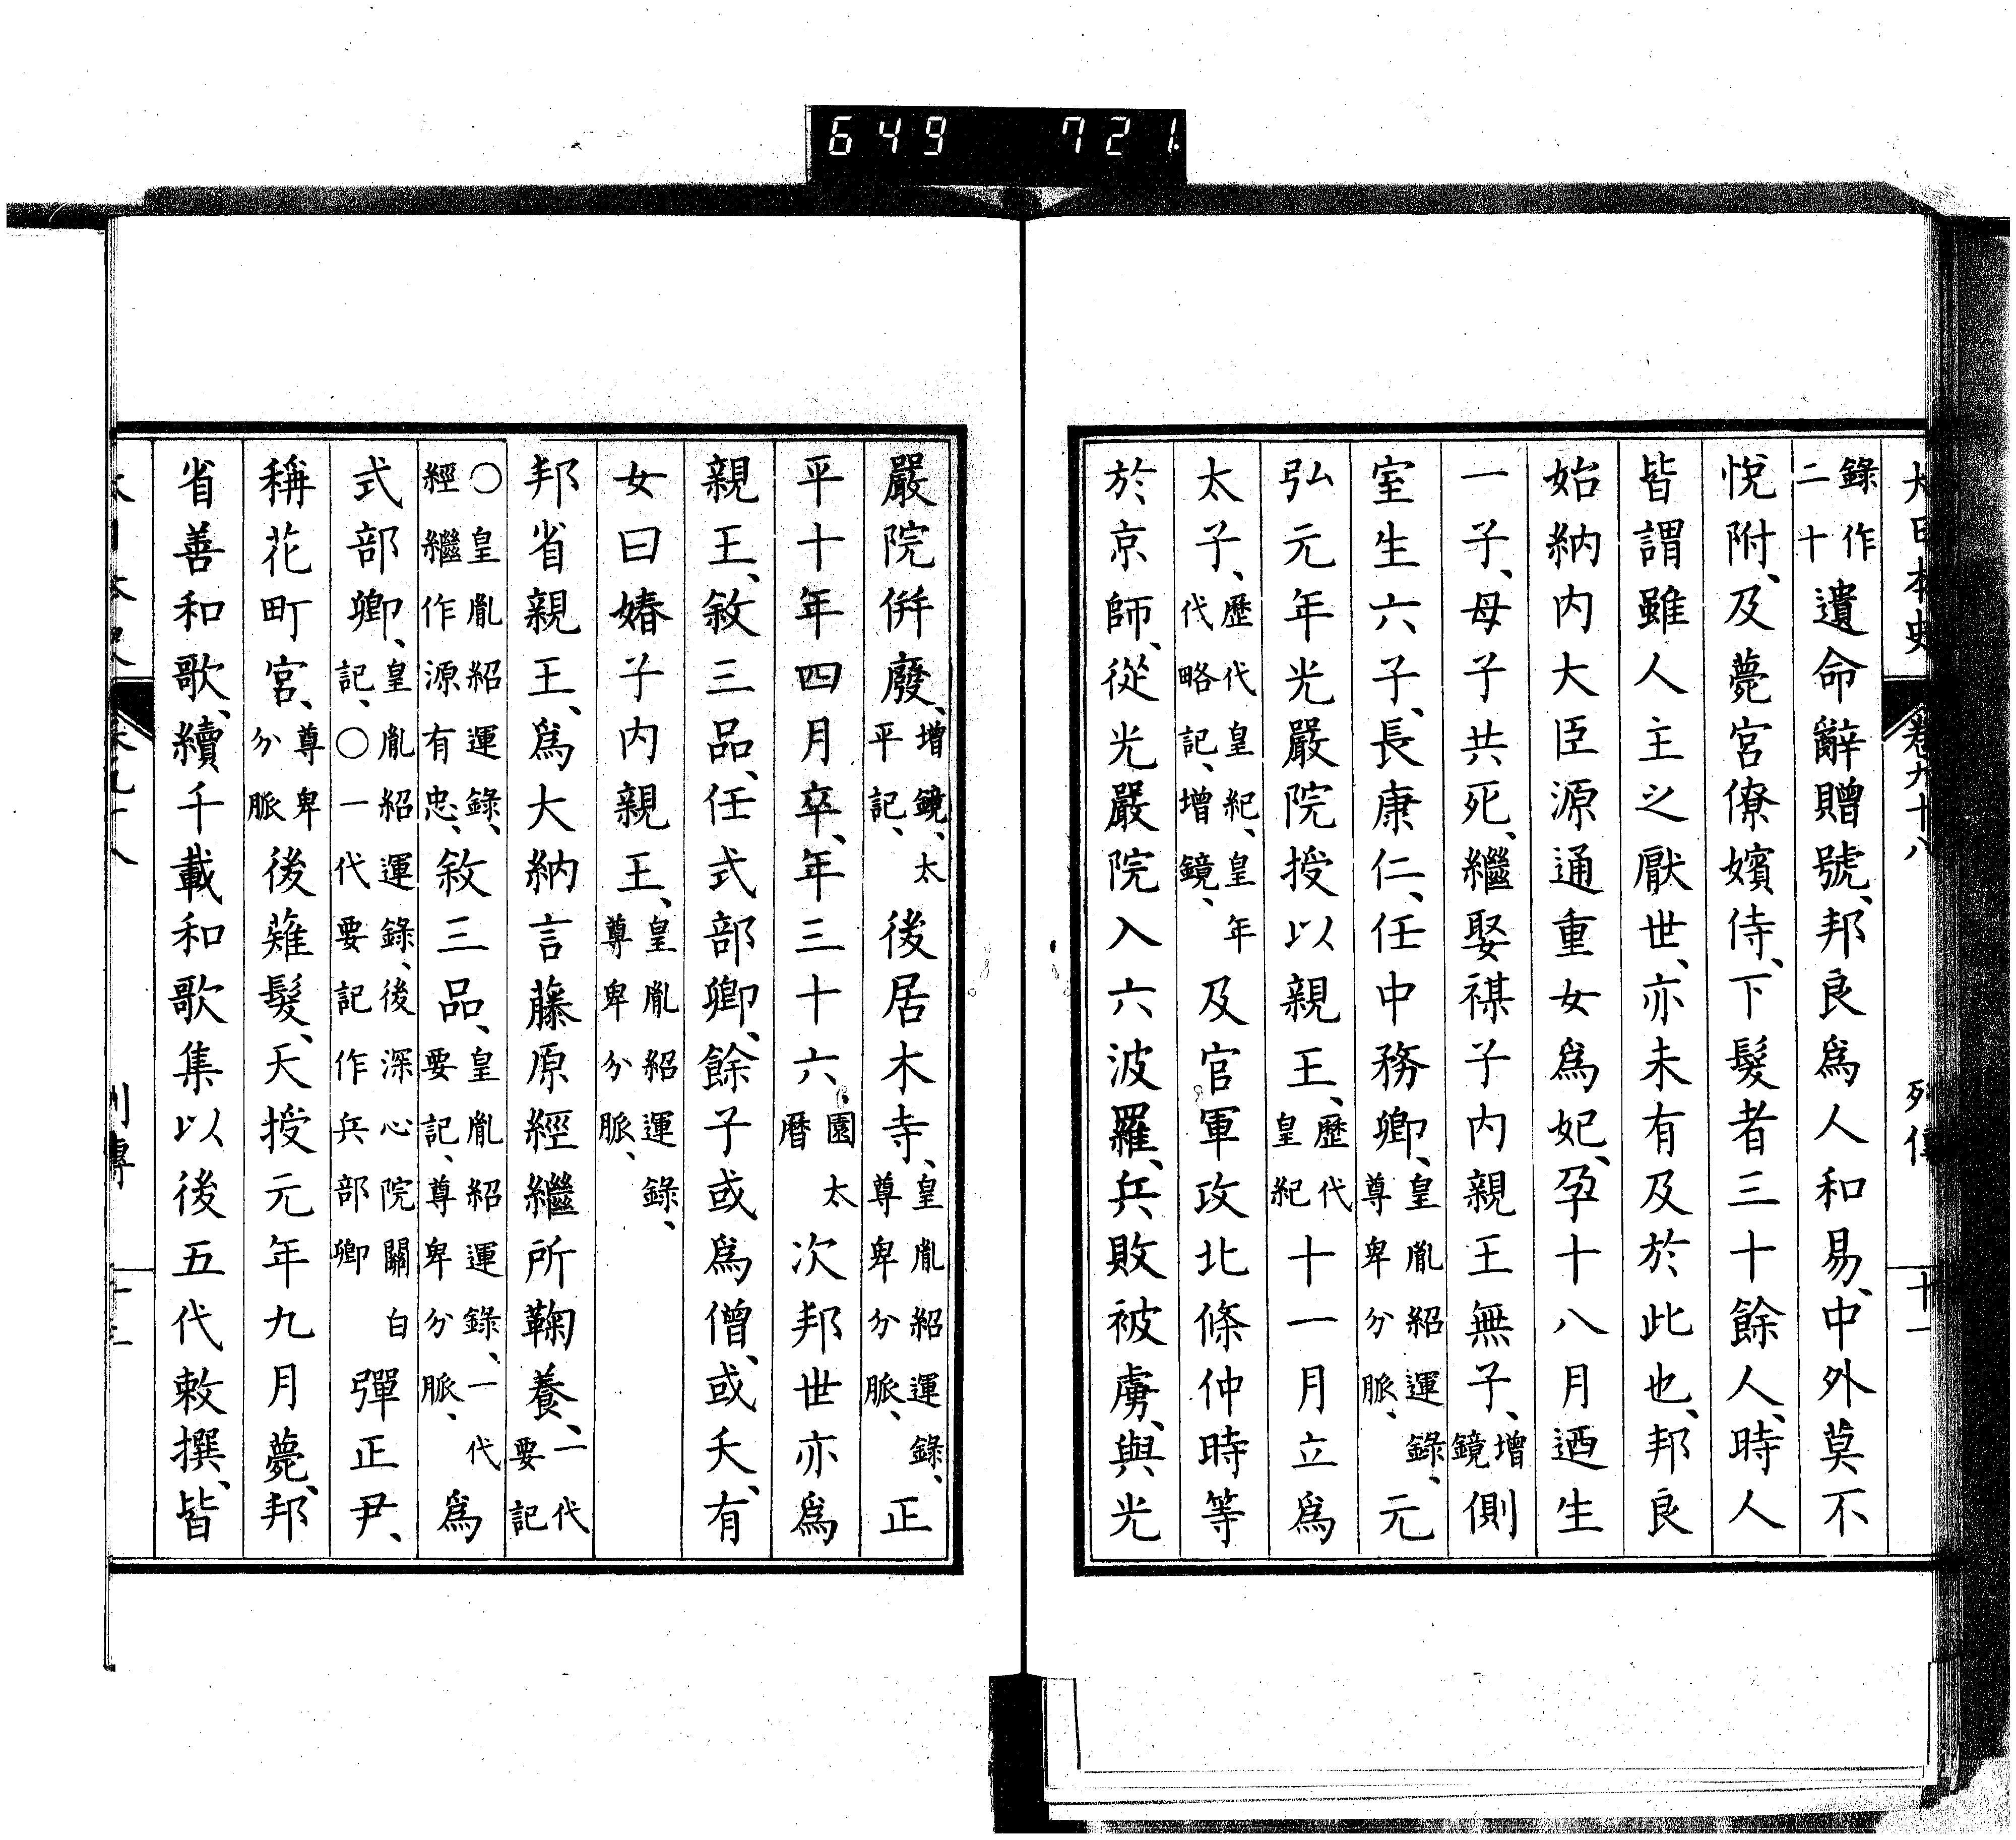 649 721.
大日本史 卷九十八 列傳 十一
錄作二十遺命辭贈號、邦良爲人和易、中外莫不
悅附、及薨宮僚嬪侍、下髮者三十餘人、時人
皆謂雖人主之厭世、亦未有及於此也、邦良
始納內大臣源通重女爲妃、孕十八月迺生
一子、母子共死、繼娶禖子內親王無子、增鏡側
室生六子、長康仁、任中務卿、皇胤紹運錄、尊卑分脈、元
弘元年光嚴院授以親王、歷代皇紀十一月立爲
太子、歷代皇紀、皇年代略記、增鏡、及官軍攻北條仲時等
於京師、從光嚴院入六波羅、兵敗被虜、與光
嚴院倂廢、增鏡、太平記、後居木寺、皇胤紹運錄、尊卑分脈、正
平十年四月卒、年三十六、園太曆次邦世亦爲
親王、敘三品、任式部卿、餘子或爲僧、或夭、有
女曰媋子內親王、皇胤紹運錄、尊卑分脈、
邦省親王、爲大納言藤原經繼所鞠養、一代要記
〇皇胤紹運錄、經繼作源有忠、敘三品、皇胤紹運錄、一代要記、尊卑分脈、爲
式部卿、皇胤紹運錄、後深心院關白記、〇一代要記作兵部卿彈正尹、
稱花町宮、尊卑分脈後薙髮、天授元年九月薨、邦
省善和歌、續千載和歌集以後五代敕撰、皆